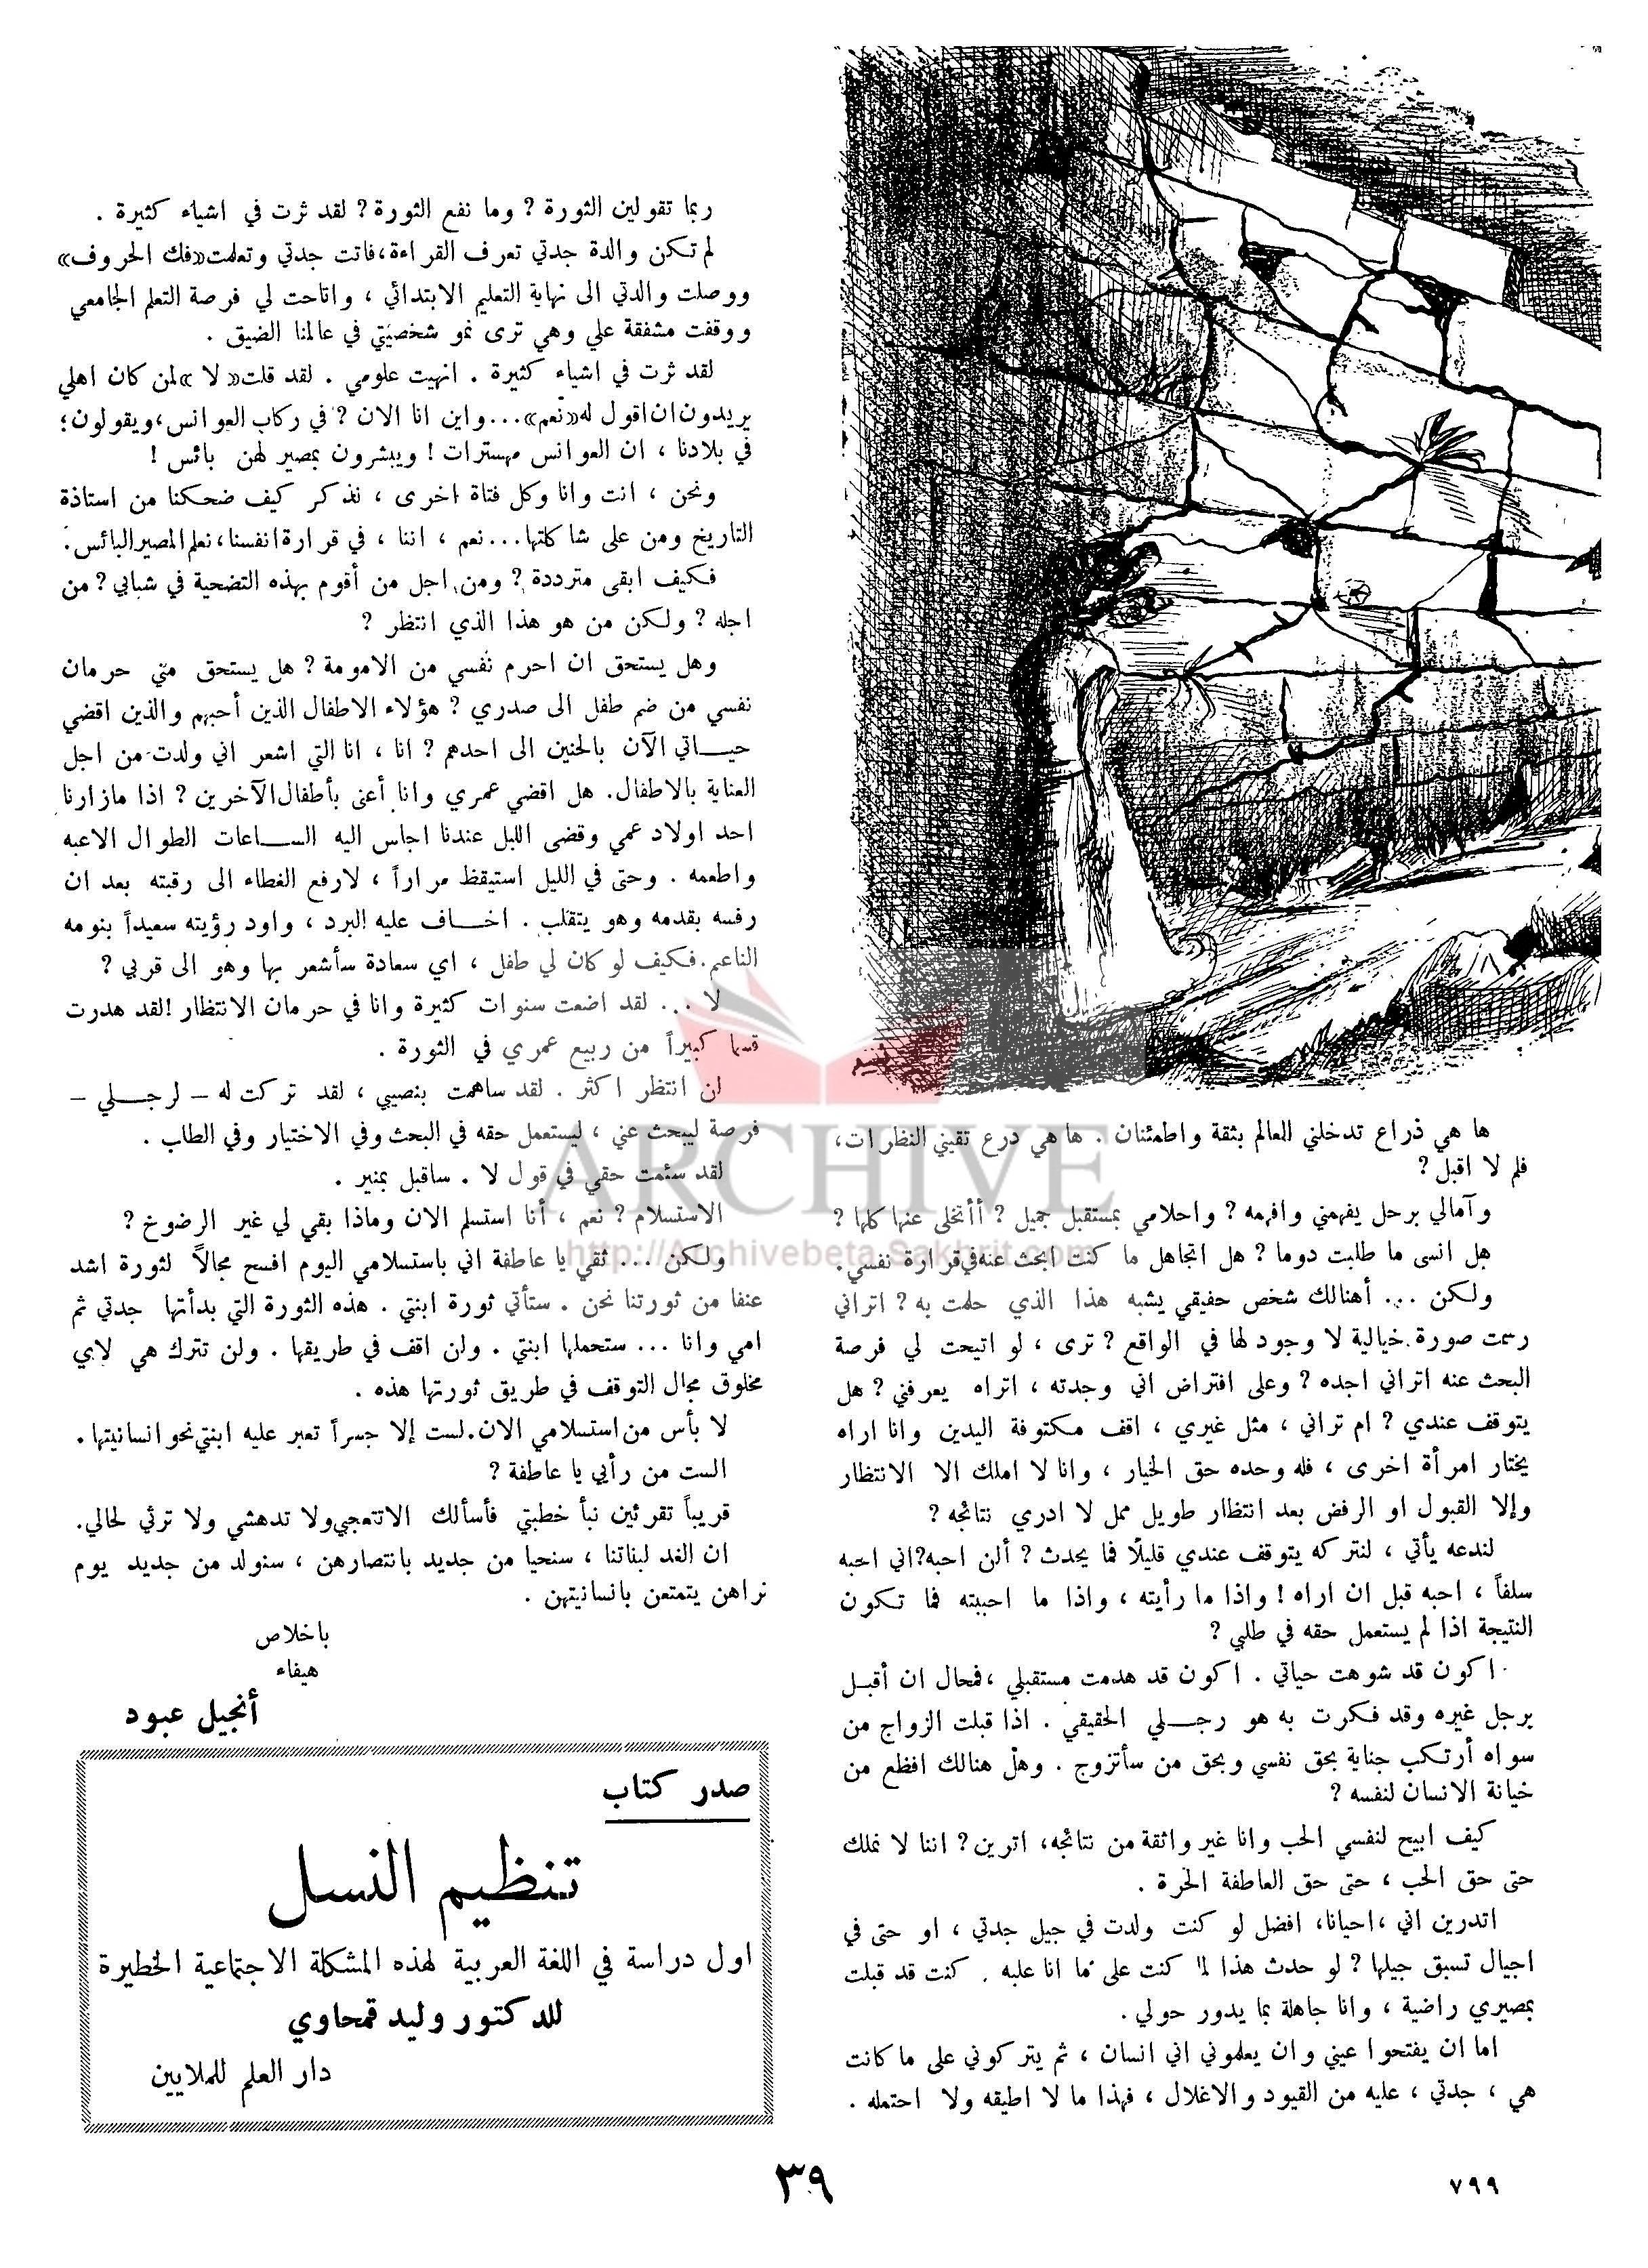 ها هي ذراع تدخلني للعالم بثقة واطمئنان . ها هي درع تقيني النظرات،
فلم لا اقبل ?
وآمالي برحل يفهمني وافهمه ? واحلامي بمستقبل جميل ? أأتخلى عنها كلها ?
هل انسى ما طلبت دوما ? هل اتجاهل ما كنت ابحث عنه في قرارة نفسي.
ولكن ... أهنالك شخص حقيقي يشبه هذا الذي حلمت به ? اتراني
رسمت صورة خيالية لا وجود لها في الواقع ? ترى ، لو اتيحت لي فرصة
البحث عنه اتراني اجده ? وعلى افتراض اني وجدته ، اتراه يعرفني ? هل
يتوقف عندي ? ام تراني ، مثل غيري ، اقف مكتوفة اليدين وانا اراه
يختار امرأة اخرى ، فله وحده حق الخيار ، وانا لا املك الا الانتظار
وإلا القبول او الرفض بعد انتظار طويل ممل لا ادري نتائجه ?
لندعه يأتي ، لنتركه يتوقف عندي قليلًا فما يحدث ? ألن احبه?اني احبه
سلفاً ، احبه قبل ان اراه ! واذا ما رأيته ، واذا ما احببته فما تكون
النتيجة اذا لم يستعمل حقه في طلبي ?
اكون قد شوهت حياتي . اكون قد هدمت مستقبلي ،فمحال ان أقبل
برجل غيره وقد فكرت به هو رجلي الحقيقي . اذا قبلت الزواج من
سواه أرتكب جناية بحق نفسي وبحق من سأتزوج . وهل هنالك افظع من
خيانة الانسان لنفسه ?
كيف ابيح لنفسي الحب وانا غير واثقة من نتائجه، اترين ? اننا لا نملك
حتى حق الحب ، حتى حق العاطفة الحرة .
اتدرين اني ،احيانا، افضل لو كنت ولدت في جيل جدتي ، او حتى في
اجيال تسبق جيلها ? لو حدث هذا لما كنت على ما انا عليه . كنت قد قبلت
بمصيري راضية ، وانا جاهلة بما يدور حولي .
اما ان يفتحوا عيني وان يعلموني اني انسان ، ثم يتركوني على ما كانت
هي ، جدتي ، عليه من القيود والاغلال ، فهذا ما لا اطيقه ولا احتمله .
ربما تقولين الثورة ? وما نفع الثورة ? لقد ثرت في اشياء كثيرة .
لم تكن والدة جدتي تعرف القراءة،فاتت جدتي وتعلمت«فك الحروف»
ووصلت والدتي الى نهاية التعليم الابتدائي ، واتاحت لي فرصة التعلم الجامعي
ووقفت مشفقة علي وهي ترى نمو شخصيتي في عالمنا الضيق .
لقد ثرت في اشياء كثيرة . انهيت علومي . لقد قلت« لا »لمن كان اهلي
يريدون ان اقول له«نعم»...واين انا الان ? في ركاب العوانس،ويقولون؛
في بلادنا ، ان العوانس مهسترات ! ويبشرون بمصير لهن بائس !
ونحن ، انت وانا وكل فتاة اخرى ، نذكر كيف ضحكنا من استاذة
التاريخ ومن على شاكلتها...نعم ، اننا ، في قرارة انفسنا،نعلم المصير البائس.
فكيف ابقى مترددة ? ومن اجل من أقوم بهذه التضحية في شبابي ? من
اجله ? ولكن من هو هذا الذي انتظر ?
وهل يستحق ان احرم نفسي من الامومة ? هل يستحق مني حرمان
نفسي من ضم طفل الى صدري ? هؤلاء الاطفال الذين أحبهم والذين اقضي
حياتي الآن بالحنين الى احدهم ? انا ، انا التي اشعر اني ولدت من اجل
العناية بالاطفال. هل اقضي عمري وانا أعنى بأطفال الآخرين ? اذا مازارنا
احد اولاد عمي وقضى الليل عندنا اجلس اليه الساعات الطوال الاعبه
واطعمه . وحتى في الليل استيقظ مراراً ، لارفع الغطاء الى رقبته بعد ان
رفسه بقدمه وهو يتقلب . اخاف عليه البرد ، واود رؤيته سعيداً بنومه
الناعم.فكيف لو كان لي طفل ، اي سعادة سأشعر بها وهو الى قربي ?
لا ... لقد اضعت سنوات كثيرة وانا في حرمان الانتظار !لقد هدرت
قسما كبيراً من ربيع عمري في الثورة .
لن انتظر اكثر . لقد ساهمت بنصيبي ، لقد تركت له – لرجلي –
فرصة ليبحث عني ، ليستعمل حقه في البحث وفي الاختيار وفي الطلب .
لقد سئمت حقي في قول لا . ساقبل بمنير .
الاستسلام ? نعم ، أنا استسلم الان وماذا بقي لي غير الرضوخ ?
ولكن ... ثقي يا عاطفة اني باستسلامي اليوم افسح مجالاً لثورة اشد
عنفا من ثورتنا نحن . ستأتي ثورة ابنتي . هذه الثورة التي بدأتها جدتي ثم
امي وانا ... ستحملها ابنتي . ولن اقف في طريقها . ولن تترك هي لاي
مخلوق مجال التوقف في طريق ثورتها هذه .
لا بأس من استسلامي الان.لست إلا جسراً تعبر عليه ابنتي نحو انسانيتها .
الست من رأيي يا عاطفة ?
قريباً تقرئين نبأ خطبتي فأسألك الاتتعجبي ولا تدهشي ولا ترثي لحالي.
ان الغد لبناتنا ، سنحيا من جديد بانتصارهن ، سنولد من جديد يوم
نراهن يتمتعن بانسانيتهن .
باخلاص
هيفاء
أنجيل عبود
صدر كتاب
تنظيم النسل
اول دراسة في اللغة العربية لهذه المشكلة الاجتماعية الخطيرة
للدكتور وليد قمحاوي
دار العلم للملايين
ARCHIVE
http://Archivebeta.Sakhrit.com
٣٩
٧٩٩